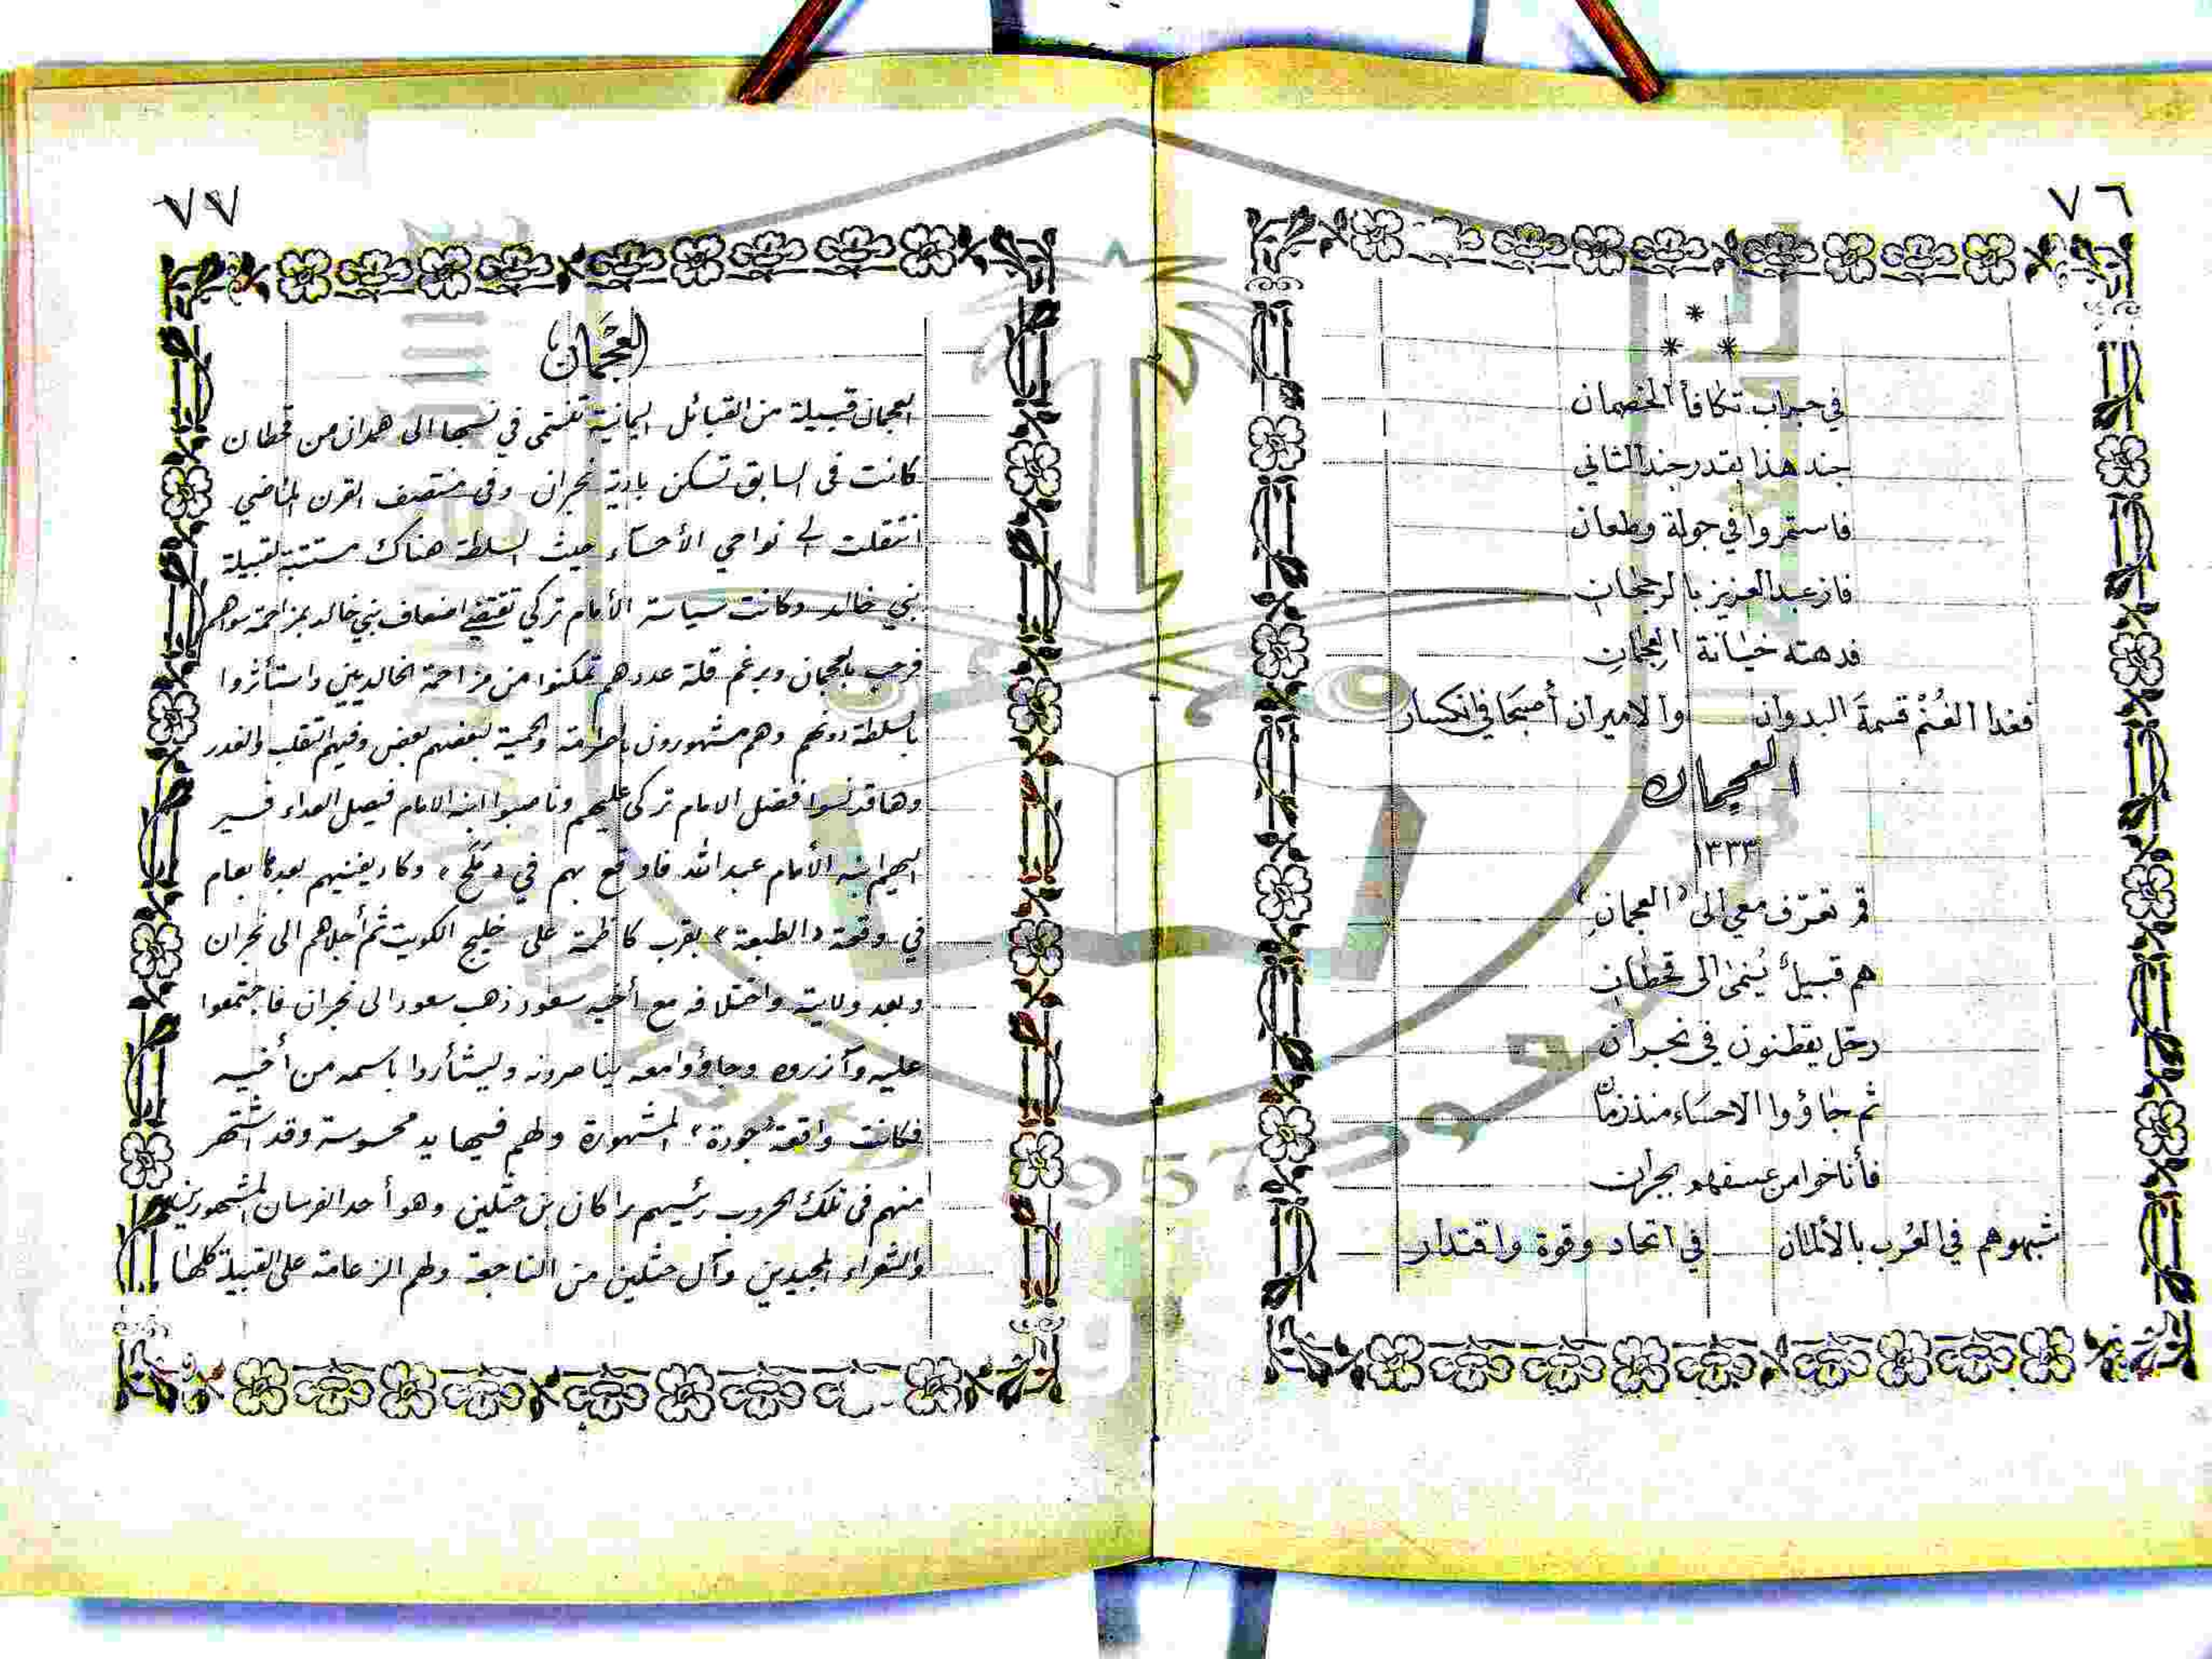 ٧٦
*
* *
في جراب تكافأ الخصمان
جند هذا بقدر جند الثاني
فاستمروا في جولة وطعان
فاز عبد العزيز بالرجحان
فدهته خيانة العجمان
فغدا الغُنْم قسمةَ البدوان والاميران أصبحا في انكسار
العجمان
١٣٣٣
قم تعرّف معي الى "العجمانِ"
هم قبيلٌ يُنمى الى قحطان
رحّل يقطنون في نجران
ثم جاؤوا الاحساء منذ زمان
فأناخوا من عسفهم بجران
شبهوهم في العُرب بالألمان في اتحاد وقوة واقتدار
٧٧
العجمان
العجمان قبيلة من القبائل اليمانية تنتمى في نسبها الى همدان من قحطان
كانت فى السابق تسكن بادية نجران وفى منتصف القرن الماضي
انتقلت الى نواحي الأحساء حيث السلطة هناك مستتبة لقبيلة
بني خالد وكانت سياسة الأمام تركي تقتضي اضعاف بني خالد بمزاحمة سواهم
فرحب بالعجمان وبرغم قلة عددهم تمكنوا من مزاحمة الخالديين واستأثروا
بالسلطة دونهم وهم مشهورون بالصرامة والحمية لبعضهم بعض وفيهم التقلب والغدر
وهاقد نسوا فضل الامام تركى عليهم وناصبوا ابنه الامام فيصل العداء فسير
اليهم ابنه الأمام عبد الله فاوقع بهم في «مَلَح» وكاد يفنيهم بعدها بعام
في وقعة «الطبعة» بقرب كاظمة على خليج الكويت ثم أجلاهم الى نجران
وبعد ولايته واختلافه مع أخيه سعود ذهب سعود الى نجران فاجتمعوا
عليه وآزروه وجاؤوا معه يناصرونه وليثأروا باسمه من أخيه
فكانت واقعة "جودة" المشهورة ولهم فيها يد محسوسة وقد اشتهر
منهم فى تلك الحروب رئيسهم راكان بن حثلين وهو أحد الفرسان المشهورين
والشعراء المجيدين وآل حثلين من الناجعة ولهم الزعامة على القبيلة كلها